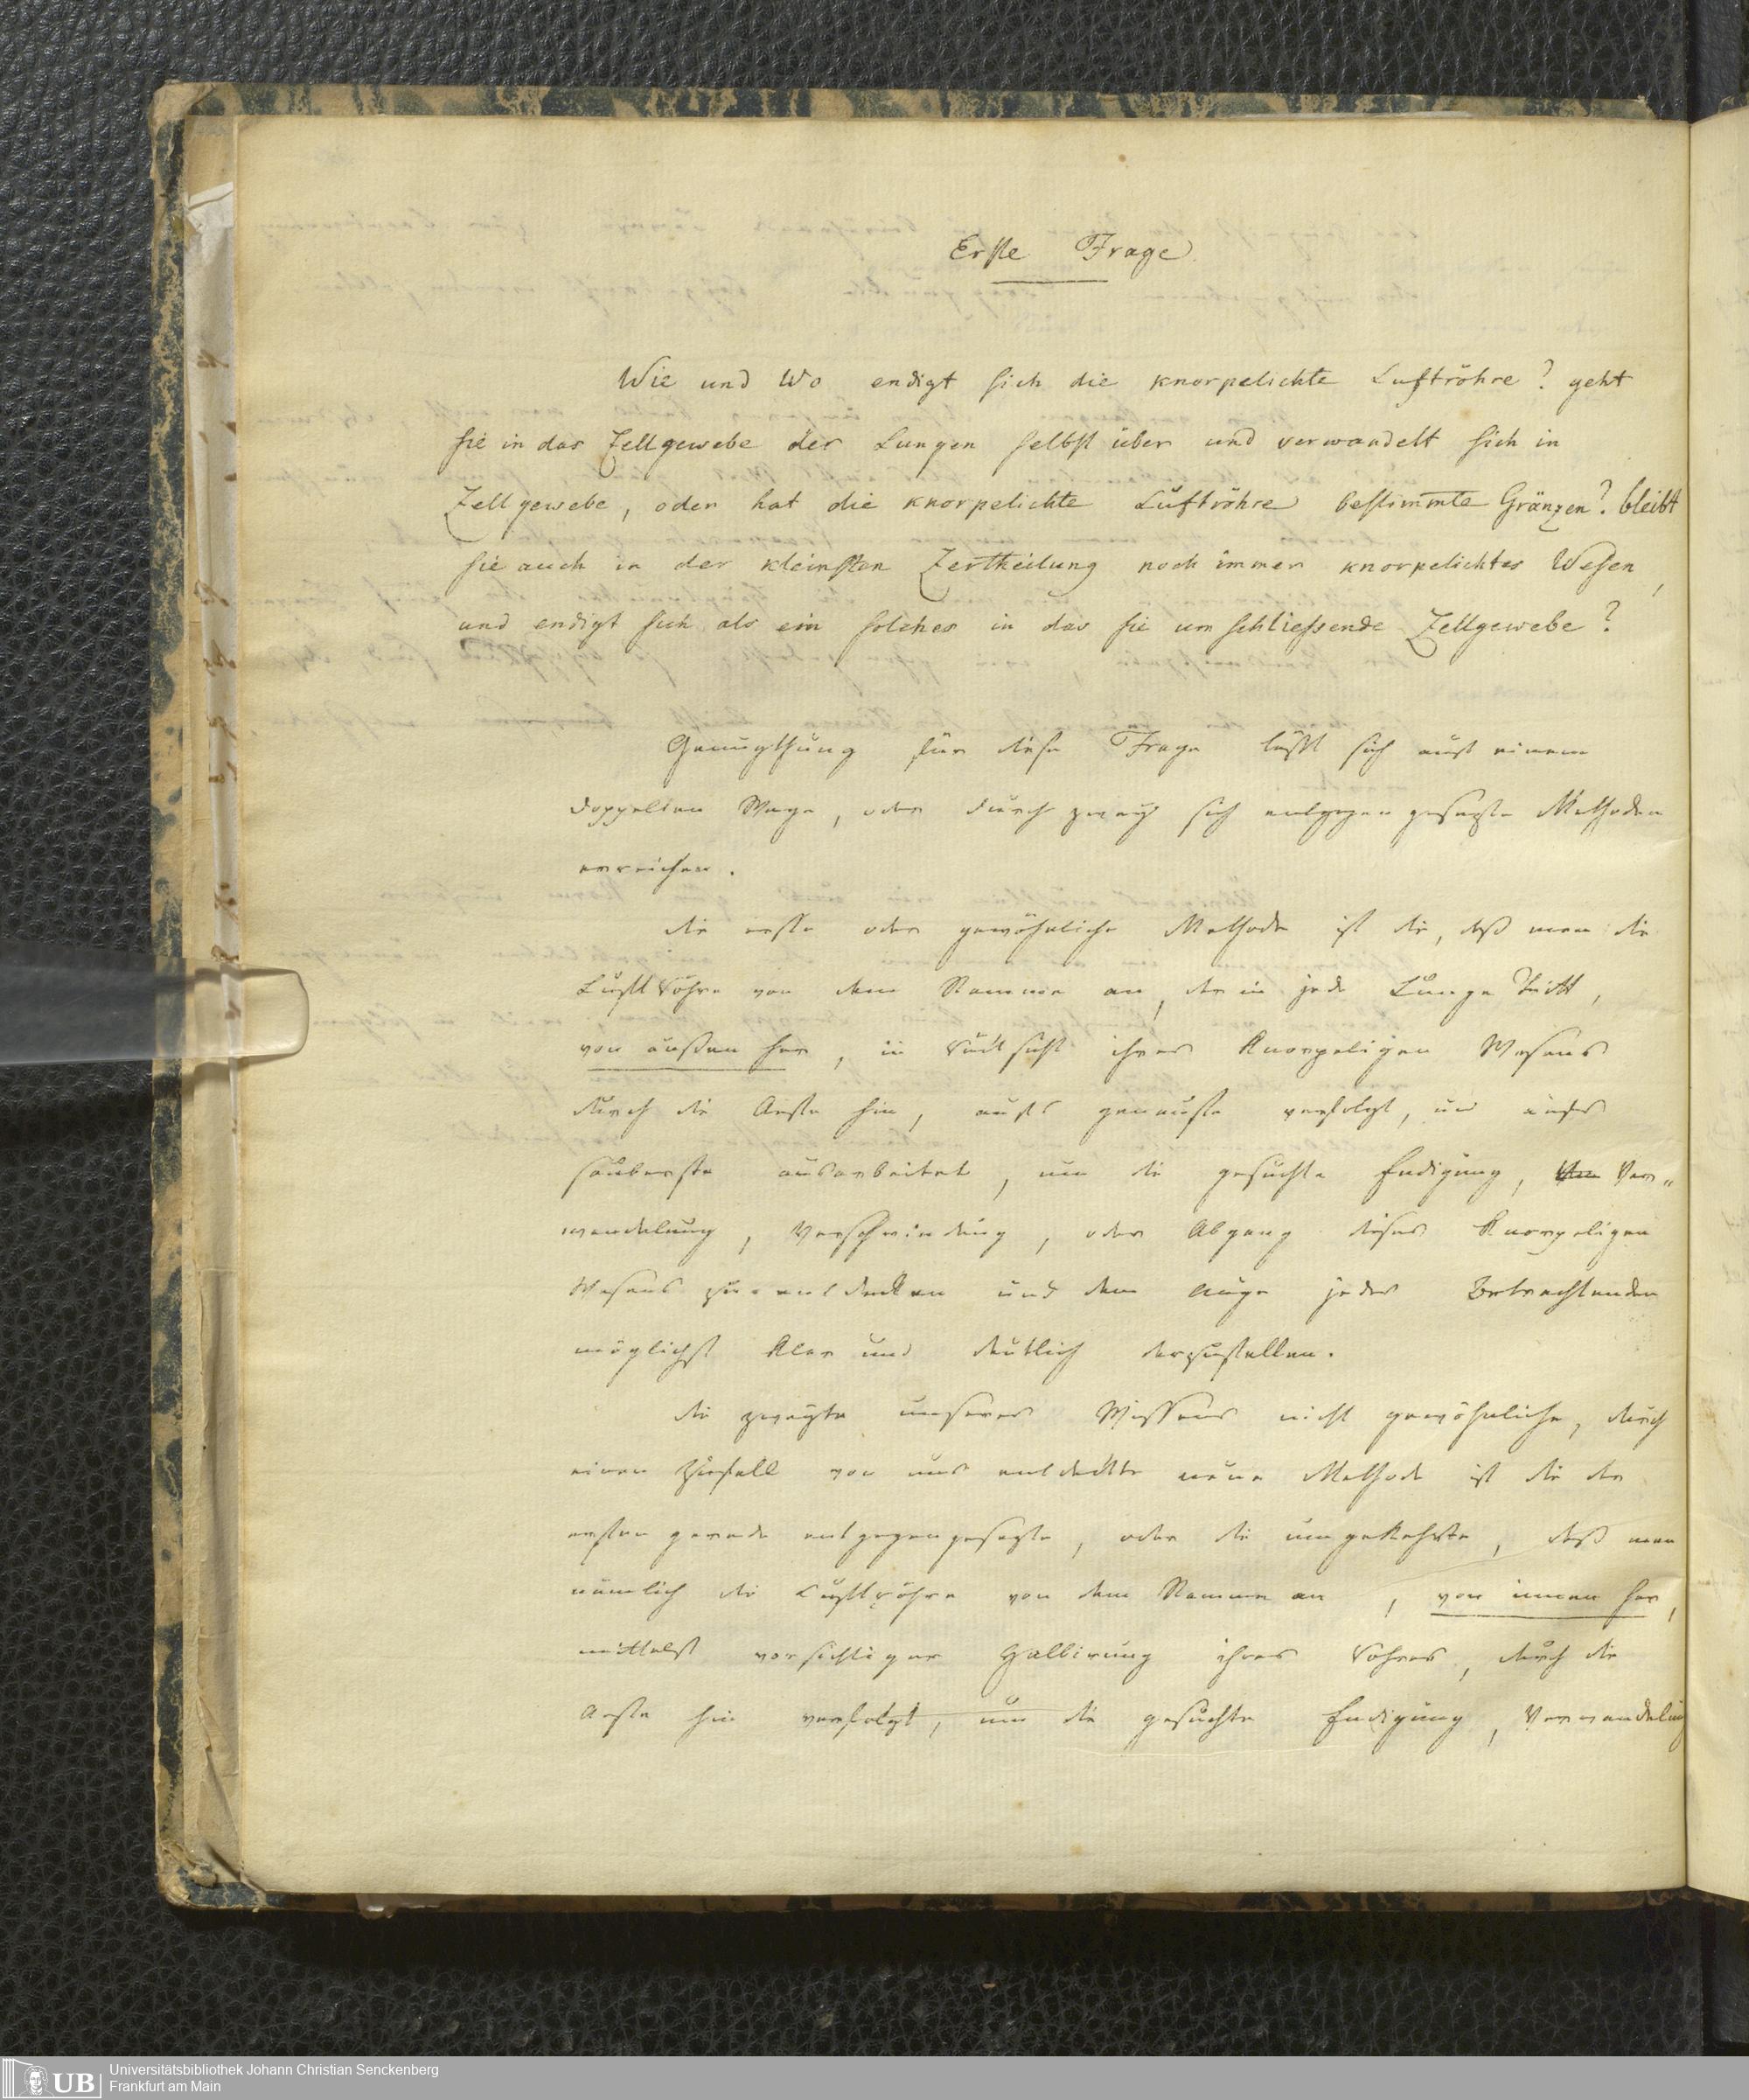 Erste Frage.
Wie und Wo endigt sich die knorpelichte Luftröhre? geht
sie in das Zellgewebe der Lungen selbst über und verwandelt sich in
Zellgewebe, oder hat die knorpelichte Luftröhre bestimmte Gränzen? bleibt
sie auch in der kleinsten Zertheilung noch immer knorpelichtes Wesen,
und endigt sich als ein solches in das sie umschliessende Zellgewebe?
Genugthuung für diese Frage läßt sich auf einem
doppelten Wege, oder durch zwey sich entgegen gesezte Methoden
erreichen.
die erste oder gewöhnliche Methode ist die, daß man die
Luftröhre von dem Stamme an, der in jede Lunge tritt,
von außen her, in Rücksicht ihres Knorpeligen Wesens
durch die Aeste hin, aufs genauste verfolgt, und aufs
sauberste ausarbeitet, um die gesuchte Endigung, Ver„
wandelung, Verschwindung, oder Abgang dieses Knorpeligen
Wesens zu entdecken und dem Auge jedes Betrachtenden
möglichst klar und deutlich darzustellen.
die zweyte unseres Wissens nicht gewöhnliche, durch
einen Zufall von uns entdeckte neue Methode ist die der
ersten gerade entgegengesezte, oder die umgekehrte, daß man
nämlich die Luftröhre von dem Stamme an, von innen her,
mittelst vorsichtiger Halbirung ihres Rohres, durch die
Aeste hin verfolgt, um die gesuchte Endigung, Verwandelung
Universitätsbibliothek Johann Christian Senckenberg
Frankfurt am Main
UB